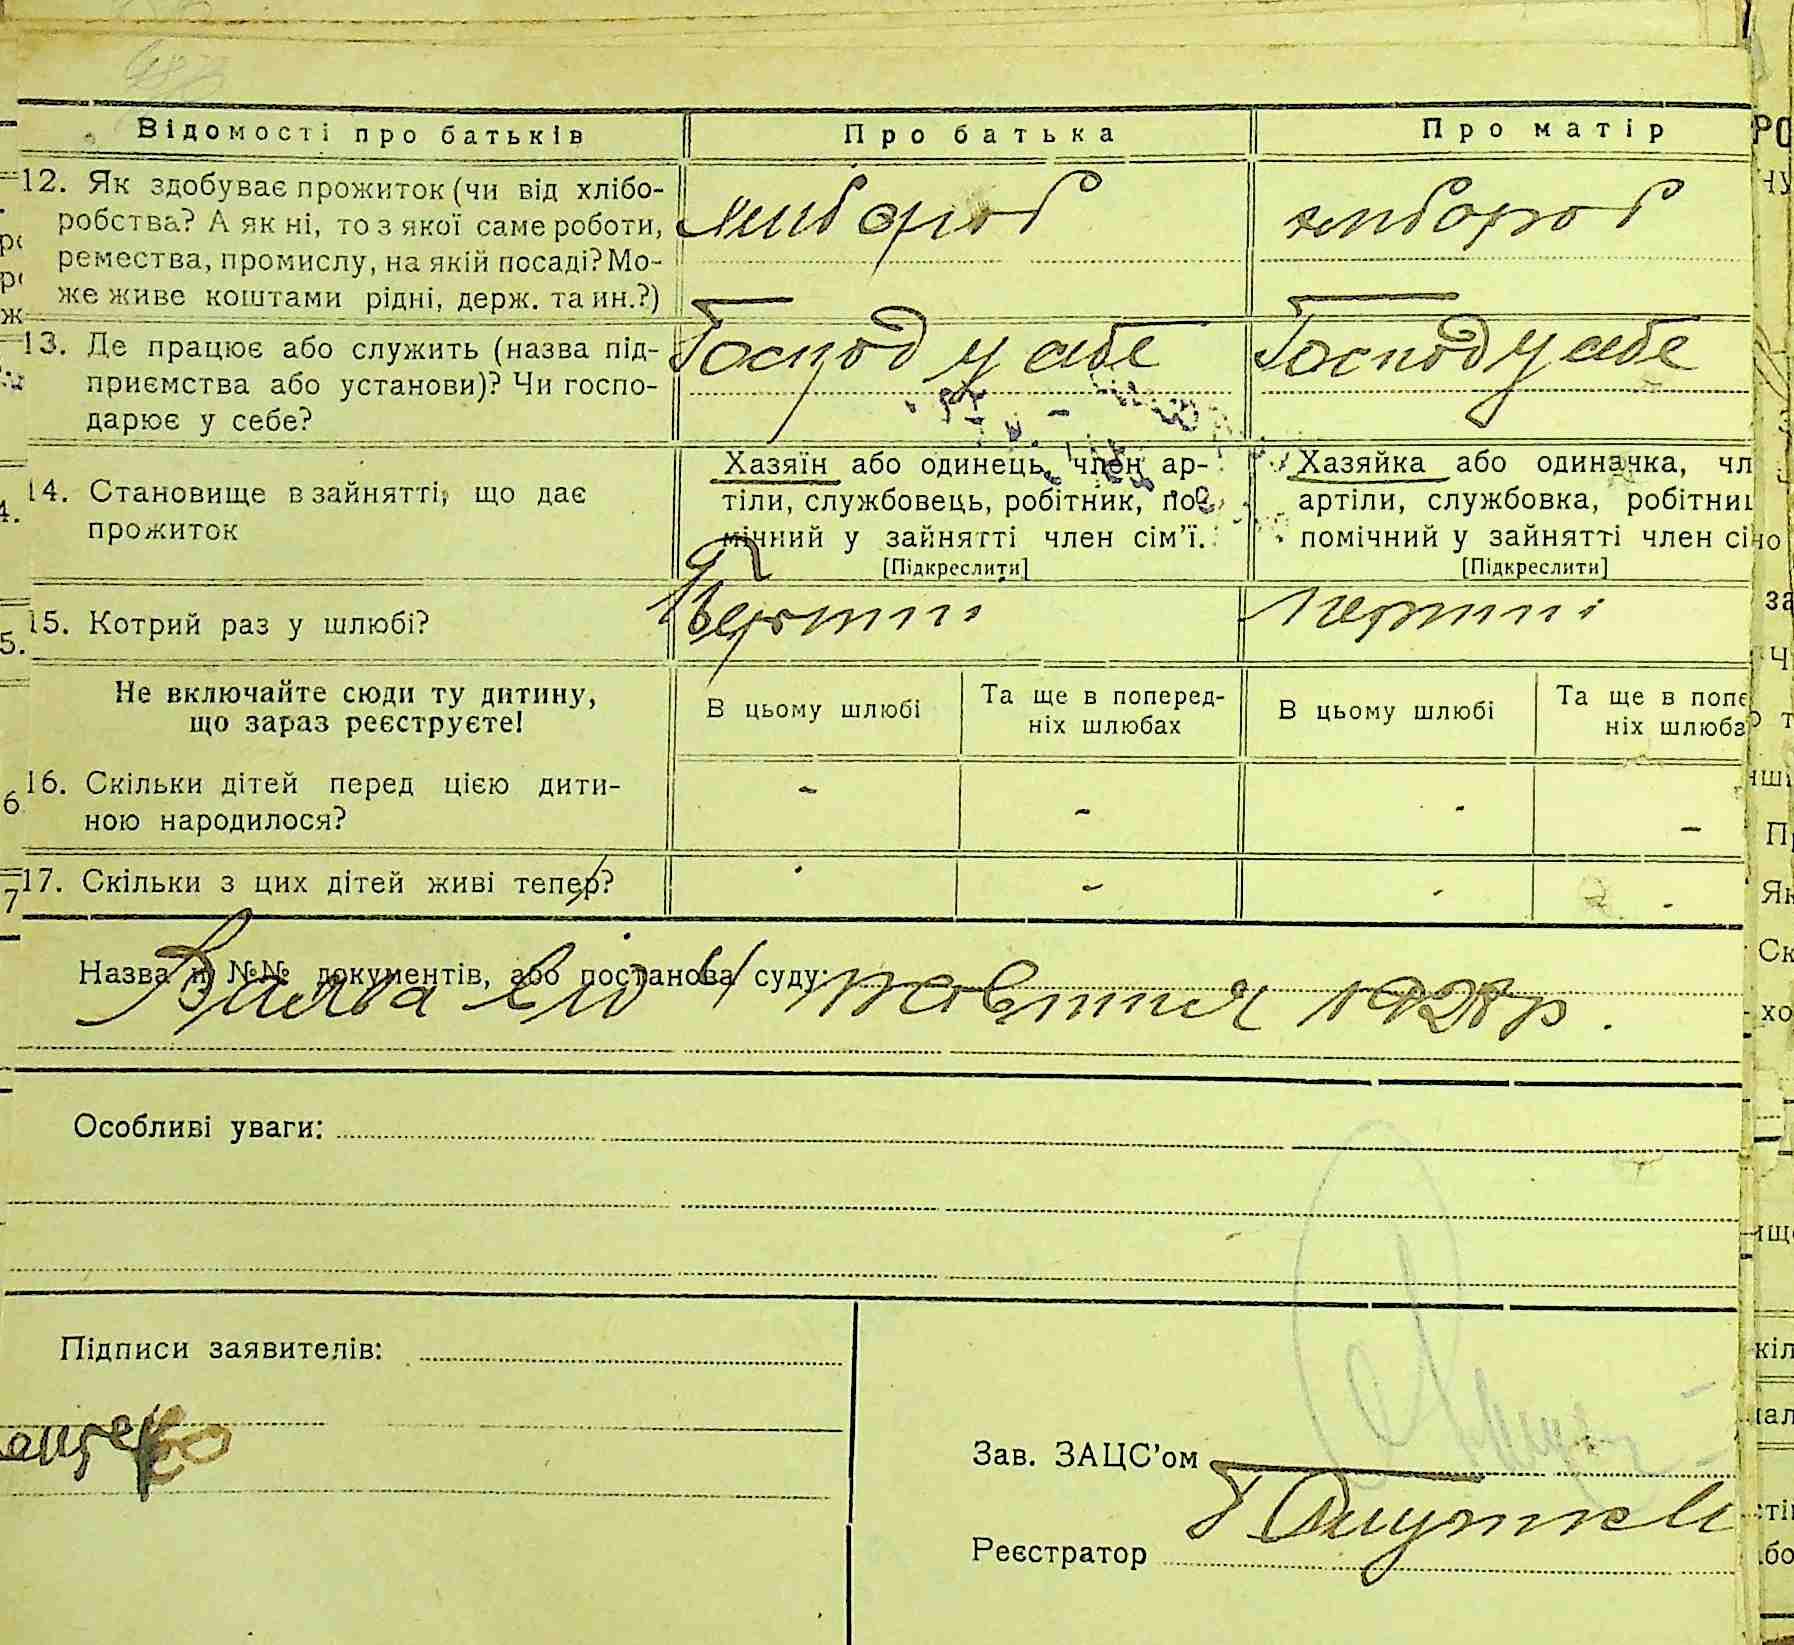 Відомості про батьків
Про батька
Про матір
12. Як здобуває прожиток (чи від хлібо-
робства? А як ні, то з якої саме роботи,
ремества, промислу, на якій посаді? Мо-
же живе коштами рідні, держ. та ин.?)
хлібороб
хлібороб
13. Де працює або служить (назва під-
приємства або установи)? Чи госпо-
дарює у себе?
Господ у себе
Господ у себе
14. Становище в зайнятті, що дає
прожиток
Хазяїн або одинець, член ар-
тіли, службовець, робітник, по-
мічний у зайнятті член сім'ї.
[Підкреслити]
Хазяйка або одиначка, чл
артіли, службовка, робітниц
помічний у зайнятті член сі
[Підкреслити]
15. Котрий раз у шлюбі?
Перший
Перший
Не включайте сюди ту дитину,
що зараз реєструєте!
В цьому шлюбі
Та ще в поперед-
ніх шлюбах
В цьому шлюбі
Та ще в попе
ніх шлюба
16. Скільки дітей перед цією дити-
ною народилося?
- - - -
17. Скільки з цих дітей живі тепер?
- - - -
Назва й №№ документів, або постанова суду:
Заява від 4/ жовтня 1928 р.
Особливі уваги:
Підписи заявителів:
Зав. ЗАЦС'ом
Реєстратор